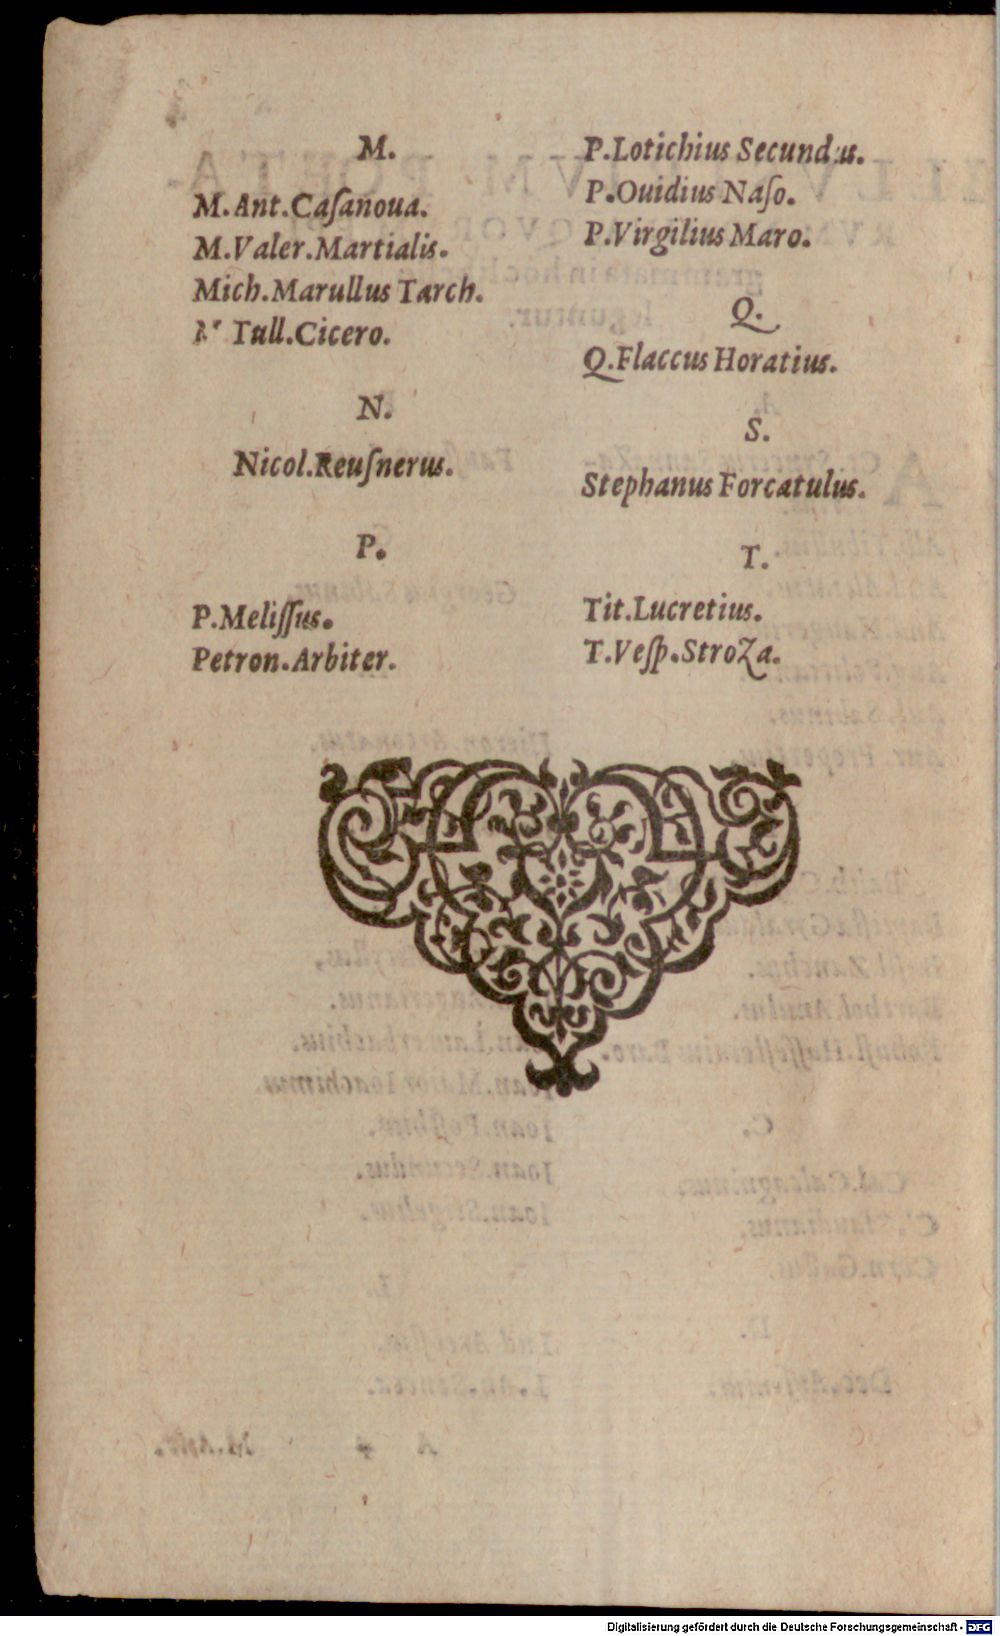 M.
M. Ant. Caſanoua.
M. Valer. Martialis.
Mich. Marullus Tarch.
M Tull. Cicero.
N.
Nicol. Reuſnerus.
P.
P. Meliſſus.
Petron. Arbiter.
P. Lotichius Secundus.
P. Ouidius Naſo.
P. Virgilius Maro.
Q.
Q. Flaccus Horatius.
S.
Stephanus Forcatulus.
T.
Tit. Lucretius.
T. Veſp. Stroza.
Digitalisierung gefördert durch die Deutsche Forschungsgemeinschaft - DFG